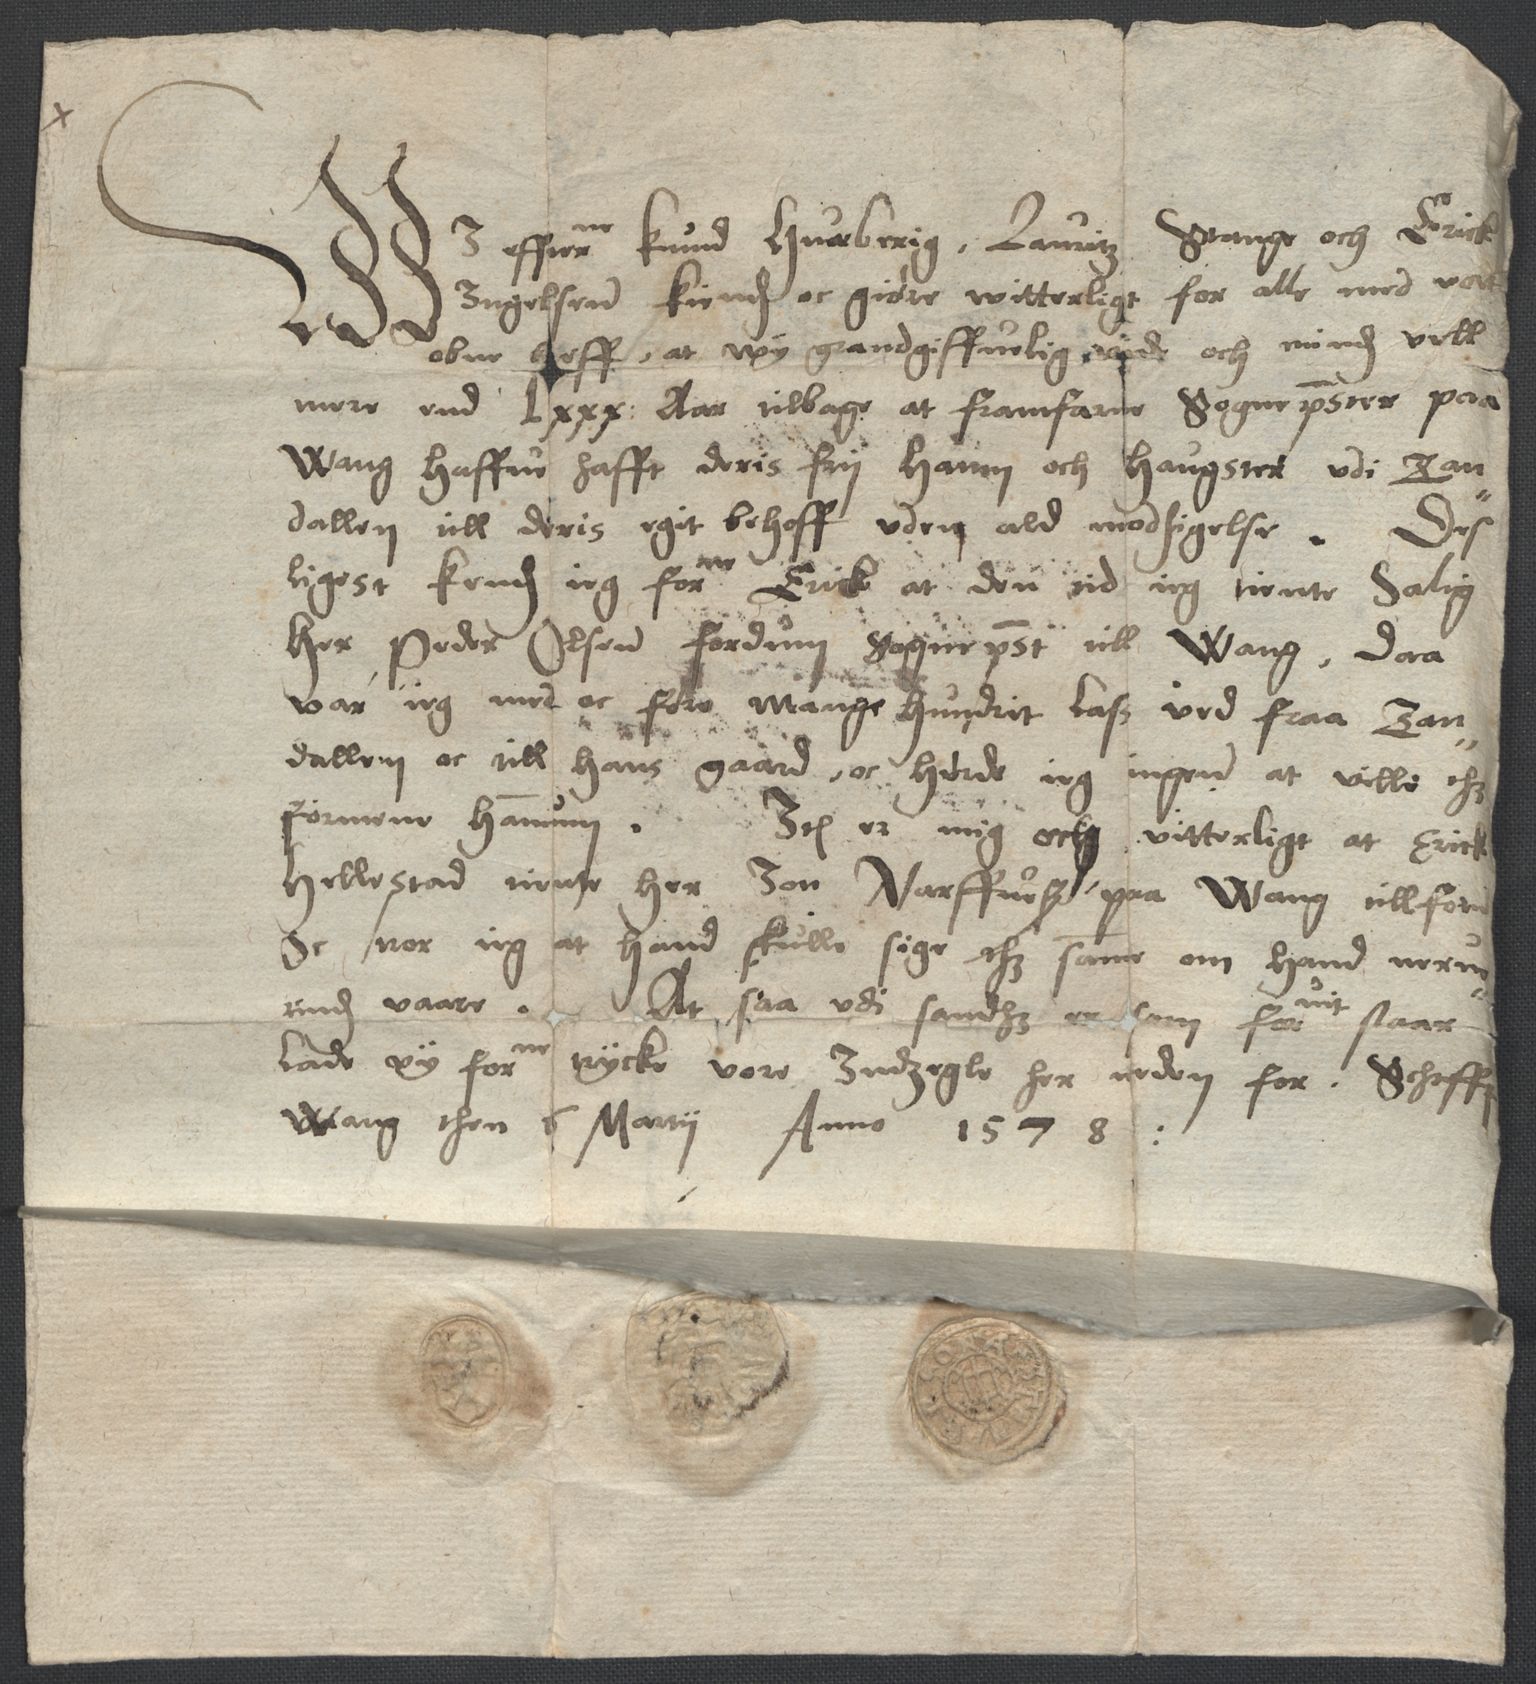 WI effterne Knud Huerberig, Lauritz Stange och Erick
Ingelsenn kiende oc giøre witterligt for alle med vort
obne breff, at wÿ grandgiffuelig vide och minde vell
mere end Lxxx Aar tilbage at framfarne Sognepster paa
Wang haffue hafft deris frij haunn och haugster vdi Zan
dallen till deris egit behoff vden ald modsigelse. Des
ligest kende ieg forne Erick at den tid ieg tiente Salig
Her Peder Olsenn fordum Sognepst till Wang, daa
var ieg med oc føre mange hundrit lass ved fraa Zan
dallen oc till hans gaard, oc hørde ieg ingenn at ville thz
formene hannum. Item er mig och vitterligt at Erick
Hellestad tiente her Jon Narffuelsz paa Wang tillforn
Oc tror ieg at hand skulle sige thz samme om hand neru
rendes vaare. At saa vdi sandhz er som foruit staar
Lade vÿ forne trÿcke vore Indzegle her neden for. Schreffz
Wang then 6 Martij Anno 1578: